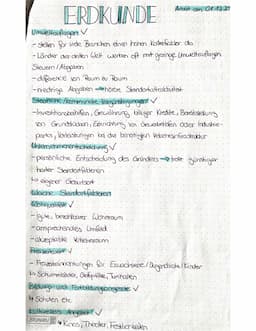 ERDKUNDE
Arbeit am 01.12.2
Umweltauflagen ✓
- stellen für viele Branchen einen hohen Kostenfaktor dar
- Länder der dritten Welt werben oft mit geringe Umweltauflagen
Steuern / Abgaben
- difference von Raum zu Raum
- niedrige Abgaben → hohe Standortattraktivität
Staatliche / kommunale Vergünstigungen ✓
- Investitionsbeihilfen, Gewährung billiger Kredite, Bereitstellung
von Grundstücken, Einrichtung von Gewerbehöfen oder Industrie-
parks, Vorleistungen bei der benötigten Verkehrsinfrastruktur
Unternehmerentscheidung ✓
- persönliche Entscheidung des Gründers → trotz günstiger
harter Standortfaktoren
↳ eigener Geburtsort
Weiche Standortfaktoren
Wohnqualität ✓
- gute, bezahlbarer Wohnraum
- ansprechendes Umfeld
- akzeptable Verkehrsraum
Freizeitwert ✓
- Freizeiteinrichtungen für Erwachsene / Jugendliche / Kinder
↳ Schwimmbäder, Golfplätze, Turnhallen
Bildungs- und Fortbildungsangebote ✓
↳ Schulen etc.
Kulturelles Angebot ✓
↳ Kinos, Theater, Festlichkeiten